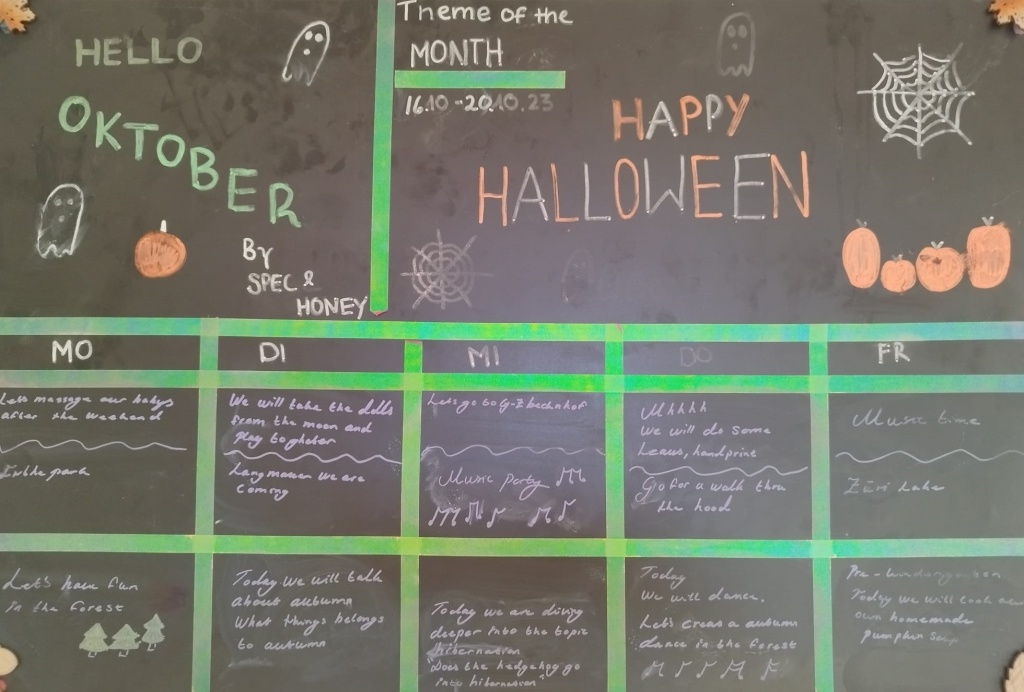 HELLO
OKTOBER
By
SPEC &
HONEY
Theme of the
MONTH
16.10 - 20.10.23
HAPPY
HALLOWEEN
MO
DI
MI
DO
FR
Lets massage our babys
after the weekend
In the park
We will take the dolls
from the moon and
Play togheter
Langmauer we are
Coming
Lets go to
Music party
Mhhhh
We will do some
Leavs, handprint
Go for a walk thru
the hood
Music time
Züri Lake
Let's have fun
In the forest
Today we will talk
about autumn
What things belongs
to autumn
Today we are diving
deeper into the topic
hibernation
"Does the hedgehog go
into hibernation"
Today
We will dance.
Let's creas a autumn
dance in the forest
Pre-
Today we will cook our
own homemade
pumpkin